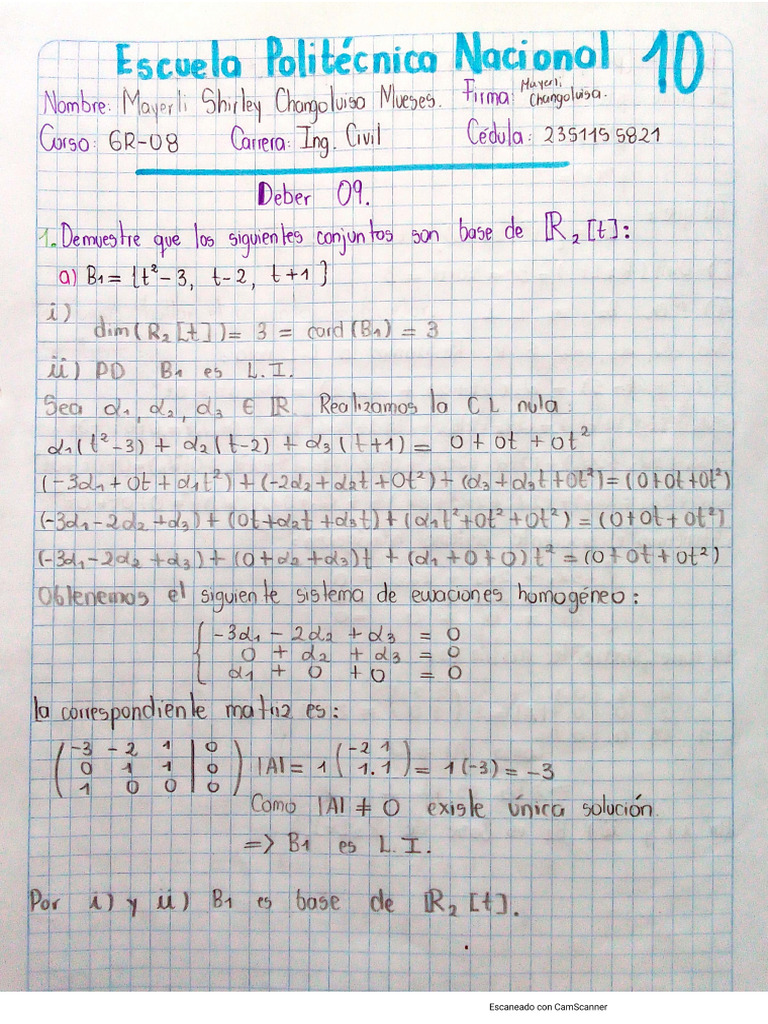 Escuela Politécnica Nacional 10
Nombre: Mayerli Shirley Changoluisa Mueses. Firma: Mayerli Changoluisa.
Curso: GR-08 Carrera: Ing. Civil Cédula: 2351155821
Deber 09.
1. Demuestre que los siguientes conjuntos son base de ℝ₂[t]:
a) B₁ = {t²-3, t-2, t+1}
i)
dim(ℝ₂[t]) = 3 = card(B₁) = 3
ii) PD B₁ es L.I.
Sea α₁, α₂, α₃ ∈ ℝ Realizamos la CL nula
α₁(t²-3) + α₂(t-2) + α₃(t+1) = 0 + 0t + 0t²
(-3α₁+0t+α₁t²)+(-2α₂+α₂t+0t²)+(α₃+α₃t+0t²)=(0+0t+0t²)
(-3α₁-2α₂+α₃)+(0t+α₂t+α₃t)+(α₁t²+0t²+0t²)=(0+0t+0t²)
(-3α₁-2α₂+α₃)+(0+α₂+α₃)t+(α₁+0+0)t²=(0+0t+0t²)
Obtenemos el siguiente sistema de ecuaciones homogéneo:
-3α₁ - 2α₂ + α₃ = 0
0 + α₂ + α₃ = 0
α₁ + 0 + 0 = 0
la correspondiente matriz es:
(-3 -2 1 | 0) |A| = 1 (-2 1) = 1(-3) = -3
(0 1 1 | 0) (1. 1)
(1 0 0 | 0)
Como |A| ≠ 0 existe única solución.
=> B₁ es L.I.
Por i) y ii) B₁ es base de ℝ₂[t].
Escaneado con CamScanner